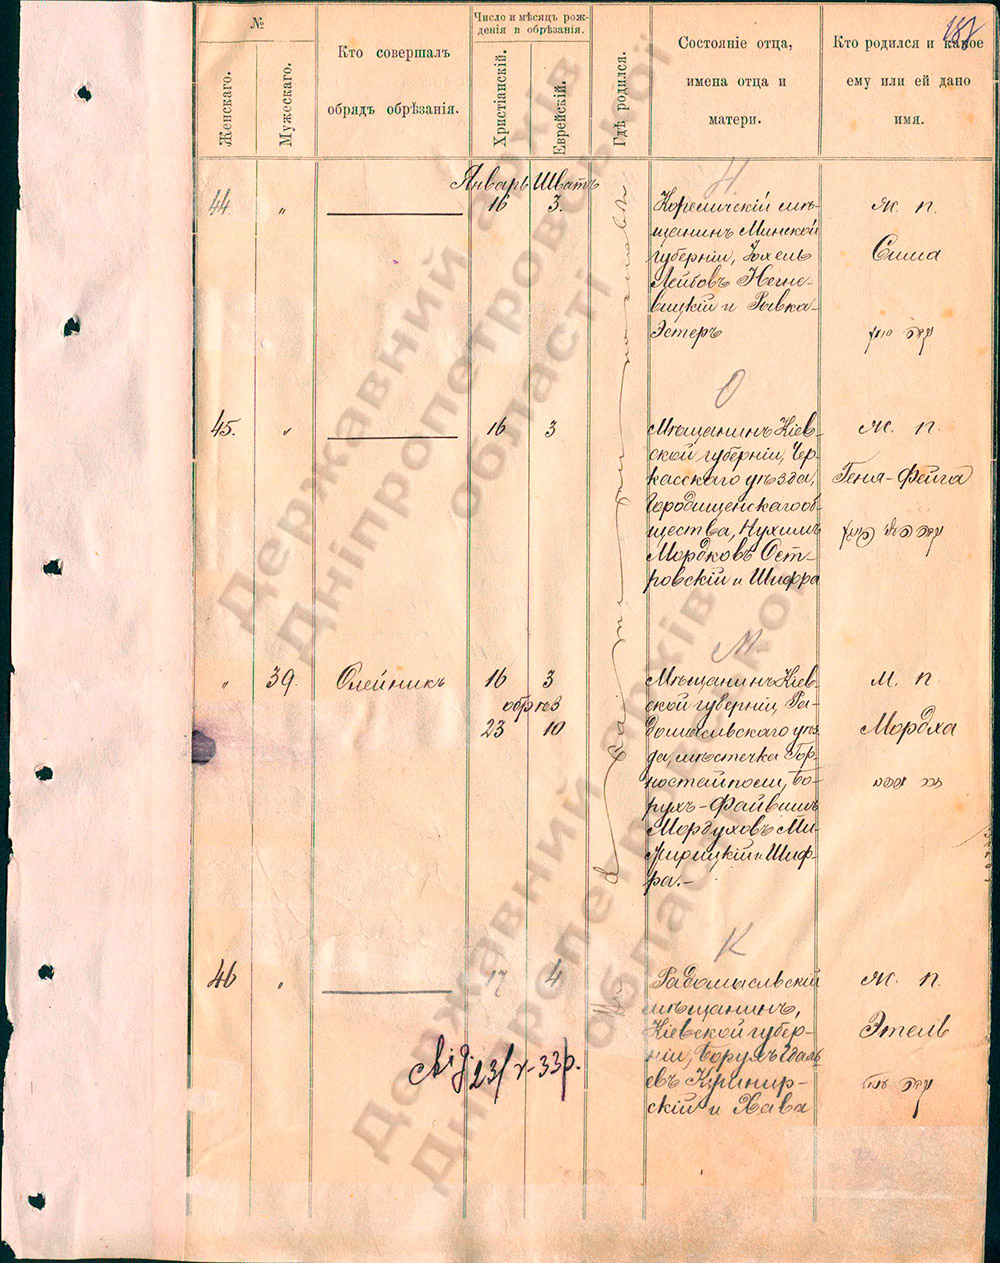 187
№
Женскаго.
Мужескаго.
Кто совершалъ
обрядъ обрѣзанія.
Число и мѣсяцъ рож-
денія и обрѣзанія.
Христіанскій.
Еврейскій.
Гдѣ родился.
Состояніе отца,
имена отца и
матери.
Кто родился и какое
ему или ей дано
имя.
Январь Шватъ
Н
44 " 16 3.
Кореличскій мѣ-
щанинъ Минской
губерніи, Іохель
Лейбовъ Негне-
вицкій и Рывка-
Эстеръ
Ж. п.
Сима
О
45. " 16 3
Мѣщанинъ Кіев-
ской губерніи, Чер-
касскаго уѣзда,
Городищенскаго об-
щества, Нухимъ
Мордковъ Ост-
ровскій и Шифра
Ж. п.
Геня-Фейга
М.
" 39. Олейникъ 16 3
обрѣз
23 10
Мѣщанинъ Кіев-
ской губерніи, Ра-
домысльскаго уѣз-
да, мѣстечка Гор-
ностайполи, Бо-
рухъ-Файвишъ
Мордуховъ
и Шиф-
ра.-
М. п.
Мордха
К
46 " 17 4
Радомысльскій
мѣщанинъ,
Кіевской губер-
ніи, Борухъ Идаль-
евъ
скій и Хава
Ж. п.
Этель
23/V-33 р.
Державний архів
Дніпропетровської
області
Державний архів
Дніпропетровської
області